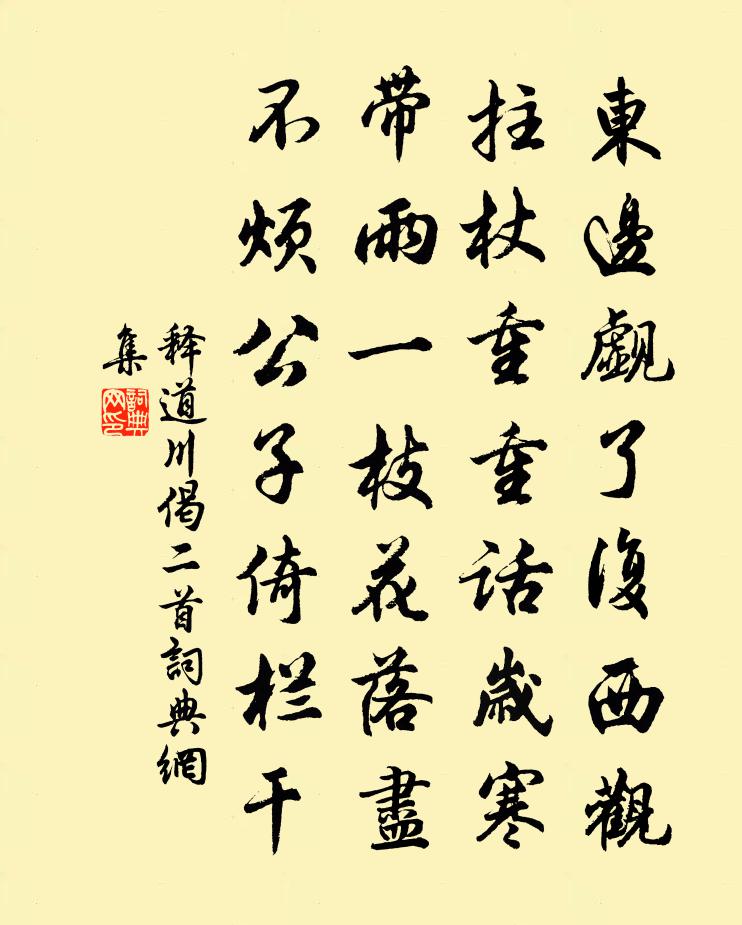 東邊覷了復西觀
拄杖重重話歲寒
帶雨一枝花落盡
不煩公子倚栏干
释道川偈二首詞典網
集
詞典
网印